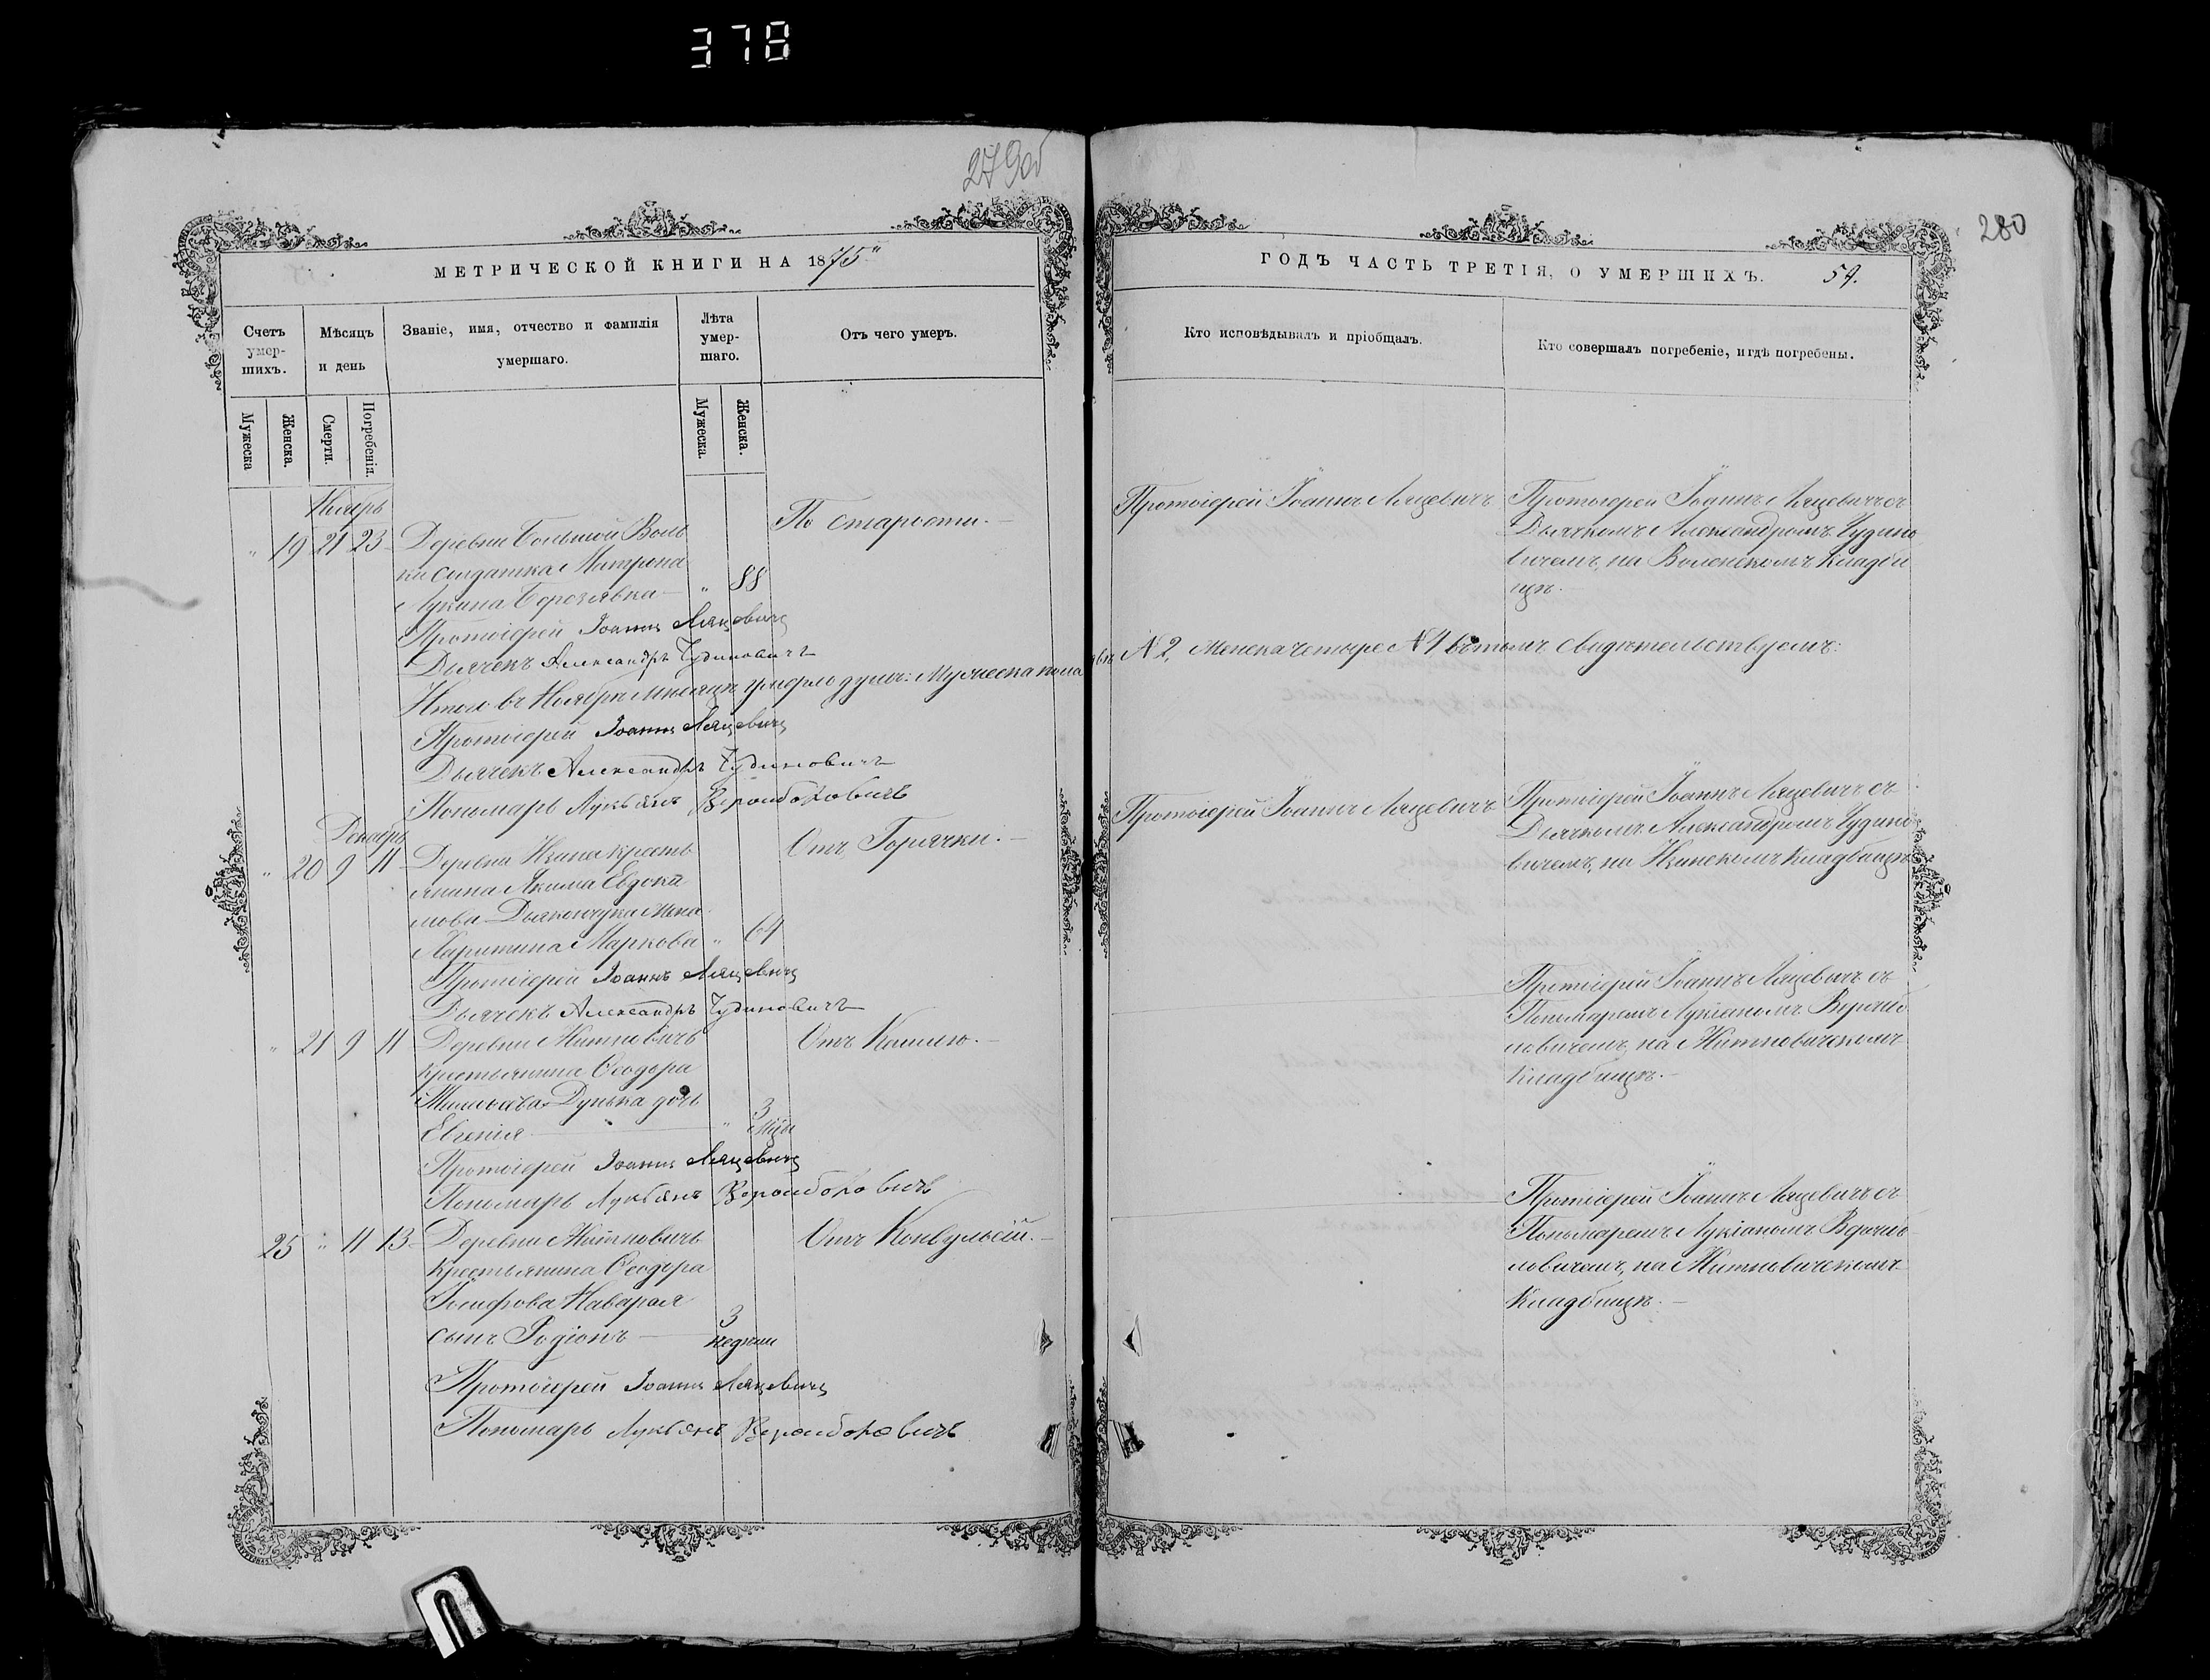 378
279 об
МЕТРИЧЕСКОЙ КНИГИ НА 1875
Счетъ умер-шихъ.
Мѣсяцъ и день
Званіе, имя, отчество и фамилія умершаго.
Лѣта умер-шаго.
Отъ чего умеръ.
Мужеска
Женска.
Смерти.
Погребенія.
Мужеска.
Женска.
Ноябрь
" 19 21 23 Деревни Большой Воль
По старости.
ки солдатка Матрона
Лукина " 88
Протоіерей Іоаннъ Ляцевичъ
Дьячекъ Александръ Чудиновичъ
Итого въ Ноябрѣ мѣсяцѣ умерло душъ: Мужеска пола
Протоіерей Іоаннъ Ляцевичъ
Дьячекъ Александръ Чудиновичъ
Пономарь Лукьянъ
Декабрь
" 20 9 11 Деревни кресть
Отъ Горячки.
янина Якима Евдоки
мова Дьякончука жена
Харитина Маркова " 64
Протоіерей Іоаннъ Ляцевичъ
Дьячекъ Александръ Чудиновичъ
" 21 9 11 Деревни Житновичъ
Отъ Кашлю.
крестьянина Ѳеодора
Дунька дочь 3
Евгенія " мцы
Протоіерей Іоаннъ Ляцевичъ
Пономарь Лукьянъ
25 " 11 13 Деревни Житновичъ
Отъ Конвульсій.
Крестьянина Ѳеодора
Іосифова
сынъ Родіонъ 3 недѣли
Протоіерей Іоаннъ Ляцевичъ
Пономарь Лукьянъ
280
ГОДЪ ЧАСТЬ ТРЕТІЯ, О УМЕРШИХЪ. 59.
Кто исповѣдывалъ и пріобщалъ.
Кто совершалъ погребеніе, и гдѣ погребены.
Протоіерей Іоаннъ Ляцевичъ
Протоіерей Іоаннъ Ляцевичъ съ
Дьячкомъ Александромъ Чудино
вичемъ, на Кладби
щѣ.
№ 2, Женска четыре № 4 въ томъ свидѣтельствуемъ:
Протоіерей Іоаннъ Ляцевичъ
Протоіерей Іоаннъ Ляцевичъ съ
Дьячкомъ Александромъ Чудино
вичемъ, на Кладбищѣ
Протоіерей Іоаннъ Ляцевичъ съ
Пономаремъ Лукіаномъ
на Житновичскомъ
Кладбищѣ.
Протоіерей Іоаннъ Ляцевичъ съ
Пономаремъ Лукіаномъ
на Житновичскомъ
Кладбищѣ.